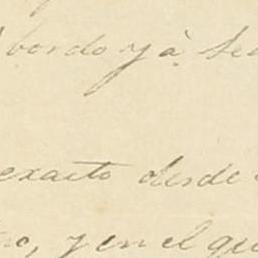 bordo y à
exacto desde
no, y en el que